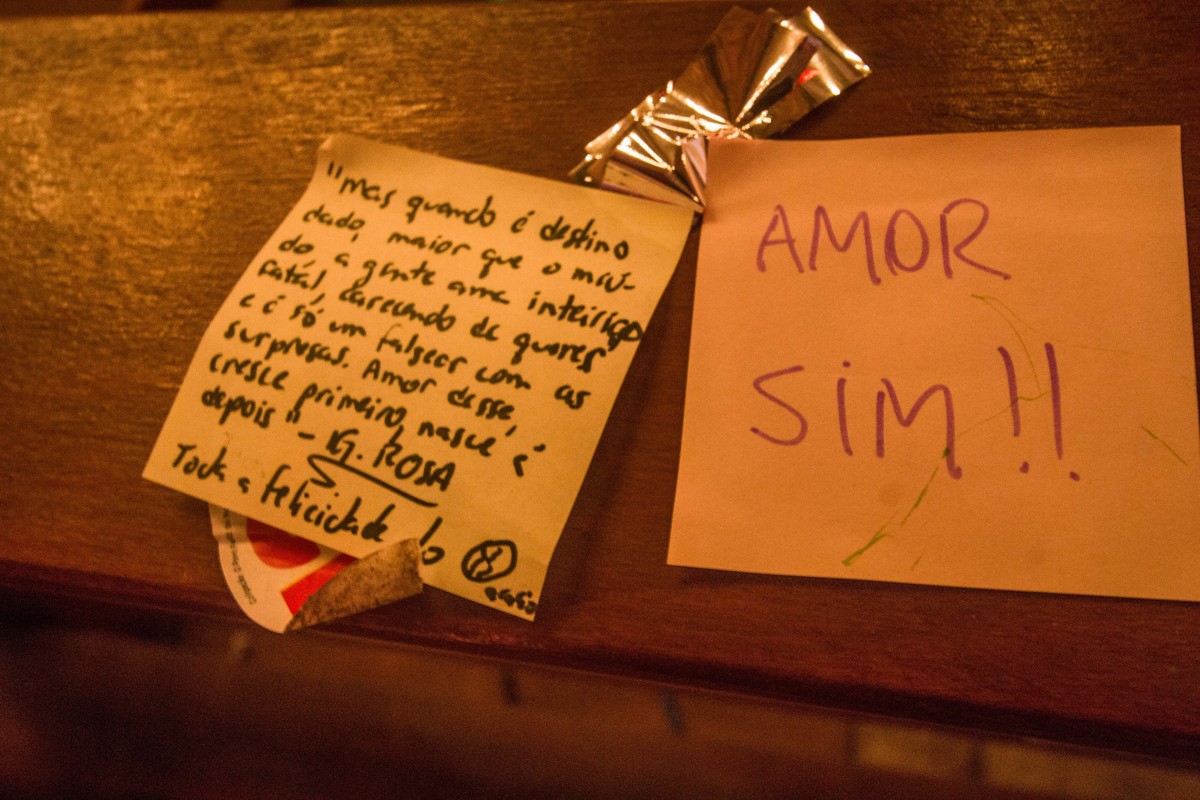 "mas quando é destino
dado, maior que o miú-
do, a gente ama inteiriço
fatal, carecendo de querer
e é só um falsear com as
surpresas. Amor desse,
cresce primeiro, nasce é
depois" - G. ROSA
Toda a felicidade
AMOR
SIM!!